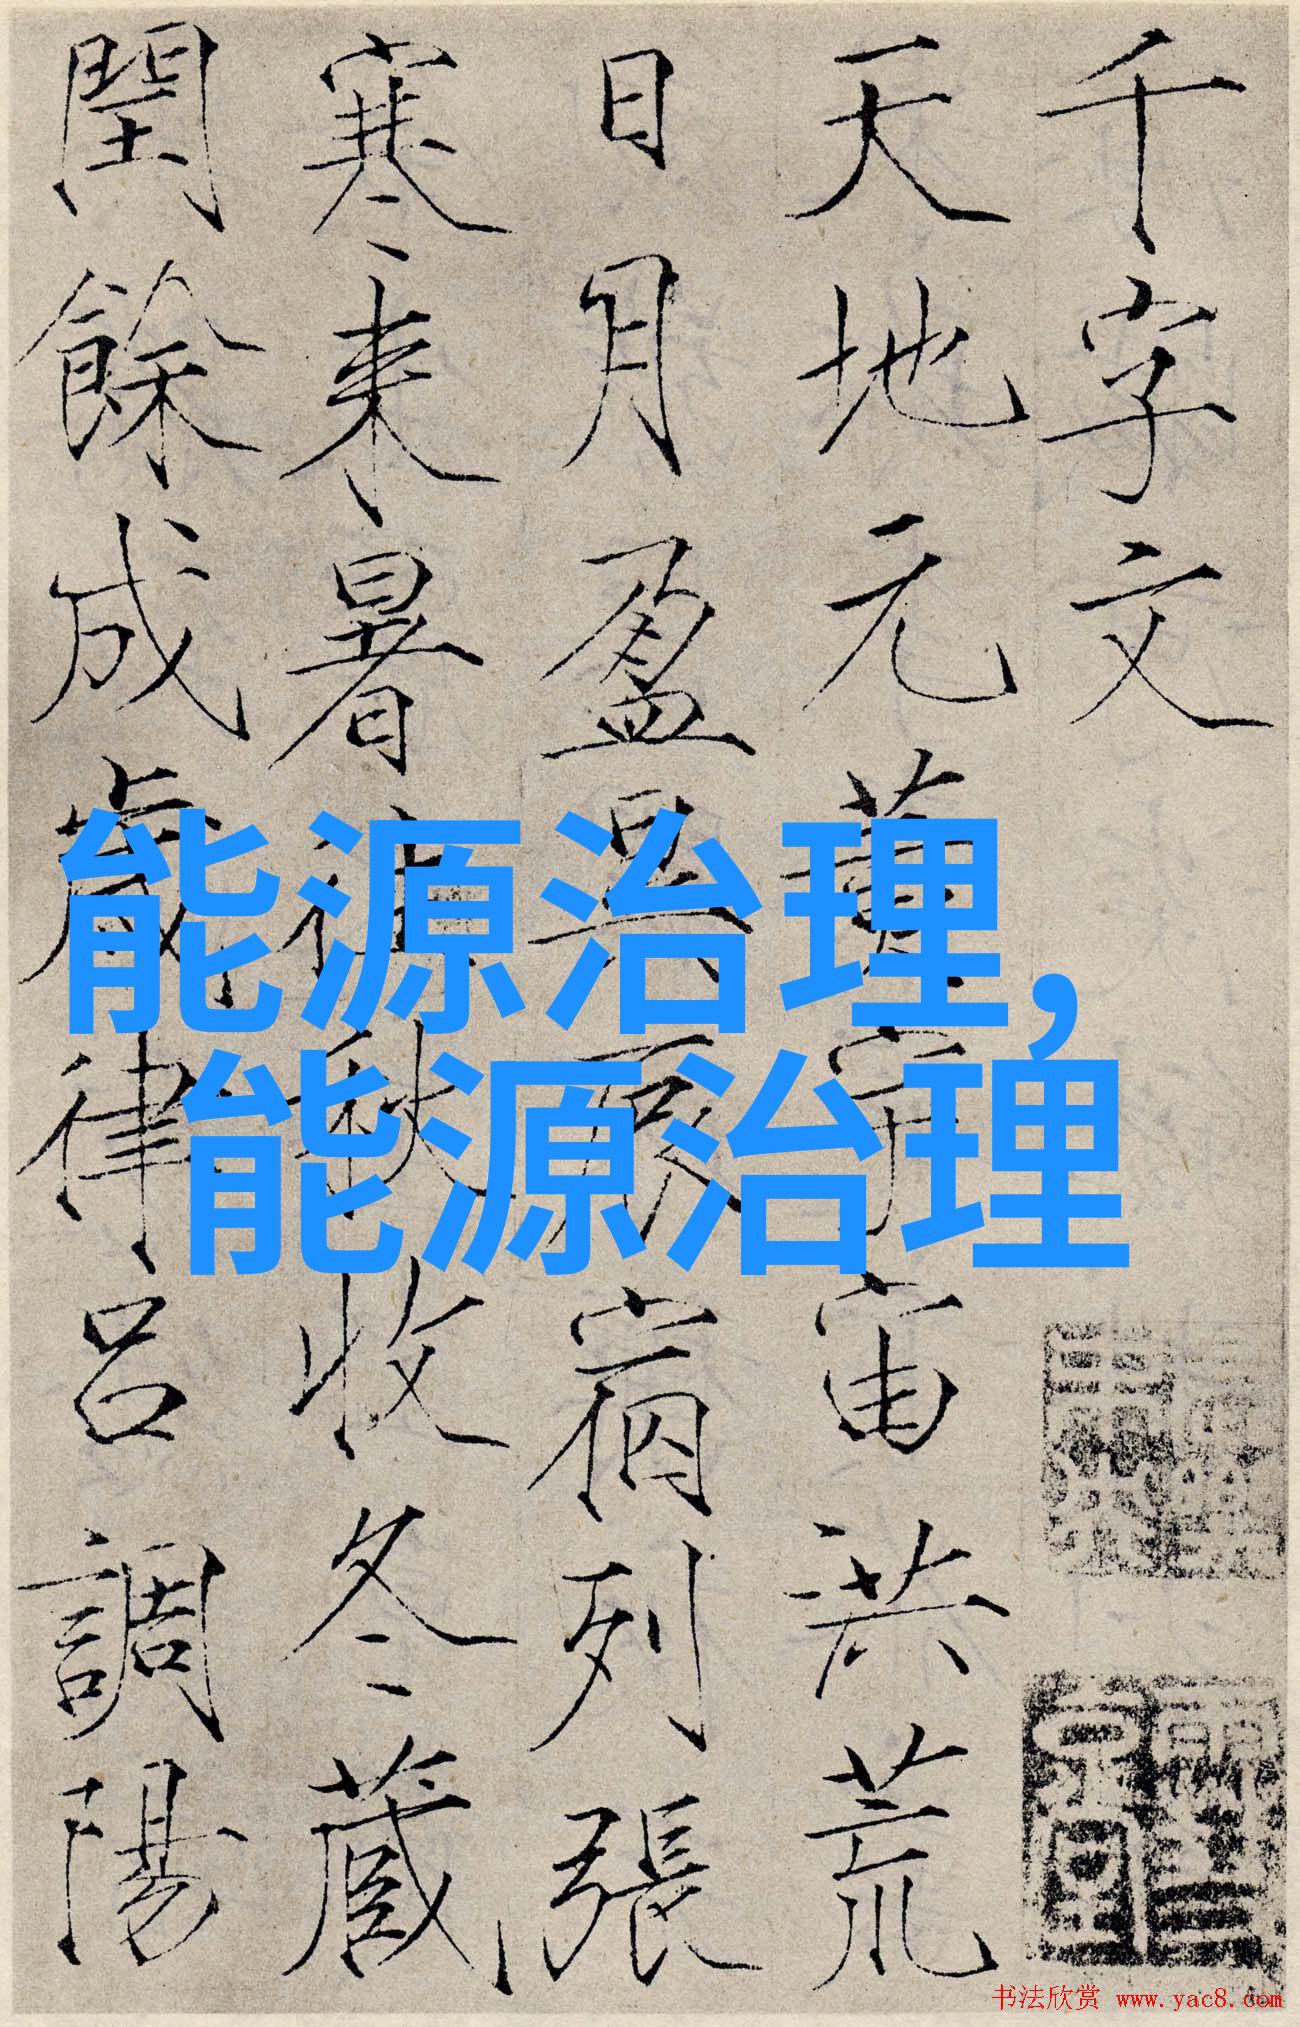 千字文
天地元黄宇宙洪荒
日月盈昃辰宿列張
寒来暑往秋收冬藏
閏餘成歲律吕調陽
能源治理,
能源治理
书法欣赏 www.yac8.com